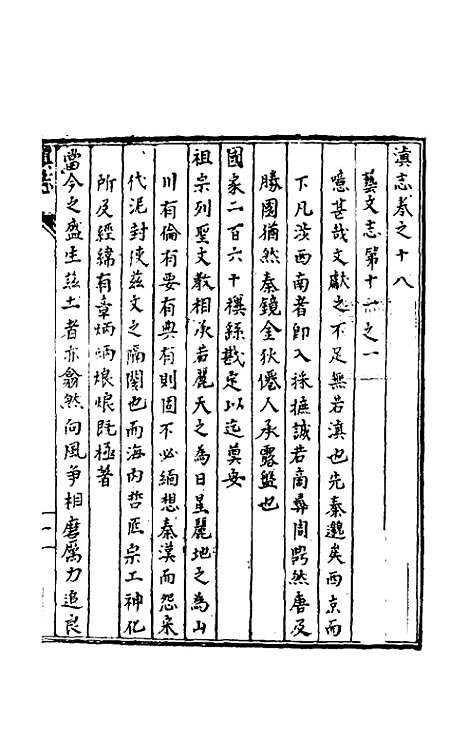 滇志卷之十八
藝文志第十一之一
噫甚哉文獻之不足無若滇也先秦邈矣西京而
下凡涉西南者即入採摭誠若商彝周鼎然唐及
勝國猶然秦鏡金狄僊人承露盤也
國家二百六十禩綏戡定以迄奠安
祖宗列聖文教相承若麗天之為日星麗地之為山
川有倫有要有典有則固不必緬想秦漢而怨宋
代泥封使茲文之隔閡也而海内哲匠宗工神化
所及經緯有章炳炳烺烺既極著
當今之盛生茲土者亦翕然向風爭相磨厲力追良
滇志